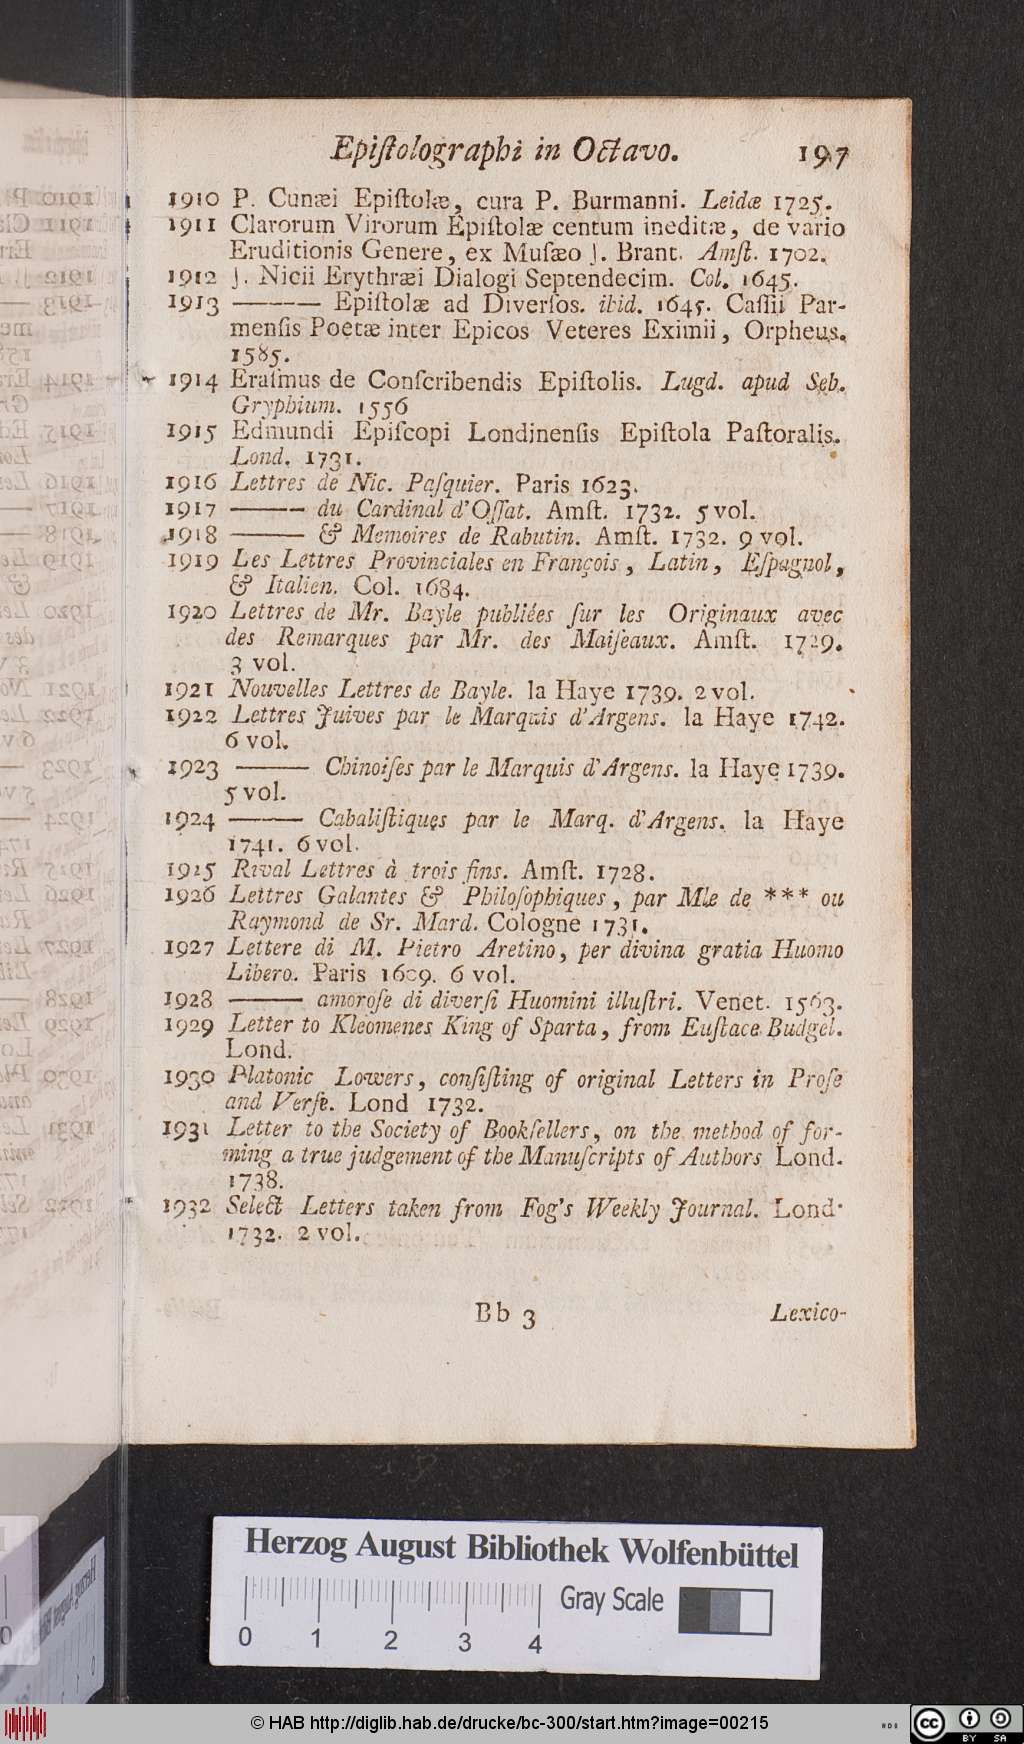 Epiſtolographi in Octavo. 197
1910 P. Cunæi Epiſtolæ, cura P. Burmanni. Leidæ 1725.
1911 Clarorum Virorum Epiſtolæ centum ineditæ, de vario
Eruditionis Genere, ex Muſæo J. Brant. Amſt. 1702.
1912 J. Nicii Erythræi Dialogi Septendecim. Col. 1645.
1913 ——— Epiſtolæ ad Diverſos. ibid. 1645. Caſſii Par-
menſis Poetæ inter Epicos Veteres Eximii, Orpheus.
1585.
1914 Eraſmus de Conſcribendis Epiſtolis. Lugd. apud Seb.
Gryphium. 1556
1915 Edmundi Epiſcopi Londinenſis Epiſtola Paſtoralis.
Lond. 1731.
1916 Lettres de Nic. Paſquier. Paris 1623.
1917 ——— du Cardinal d'Oſſat. Amſt. 1732. 5 vol.
1918 ——— & Memoires de Rabutin. Amſt. 1732. 9 vol.
1919 Les Lettres Provinciales en François, Latin, Eſpagnol,
& Italien. Col. 1684.
1920 Lettres de Mr. Bayle publiées ſur les Originaux avec
des Remarques par Mr. des Maiſeaux. Amſt. 1729.
3 vol.
1921 Nouvelles Lettres de Bayle. la Haye 1739. 2 vol.
1922 Lettres Juives par le Marquis d'Argens. la Haye 1742.
6 vol.
1923 ——— Chinoiſes par le Marquis d'Argens. la Haye 1739.
5 vol.
1924 ——— Cabaliſtiques par le Marq. d'Argens. la Haye
1741. 6 vol.
1925 Rival Lettres à trois fins. Amſt. 1728.
1926 Lettres Galantes & Philoſophiques, par Mle de *** ou
Raymond de Sr. Mard. Cologne 1731.
1927 Lettere di M. Pietro Aretino, per divina gratia Huomo
Libero. Paris 1609. 6 vol.
1928 ——— amoroſe di diverſi Huomini illuſtri. Venet. 1563.
1929 Letter to Kleomenes King of Sparta, from Euſtace Budgel.
Lond.
1930 Platonic Lowers, conſiſting of original Letters in Proſe
and Verſe. Lond 1732.
1931 Letter to the Society of Bookſellers, on the method of for-
ming a true judgement of the Manuſcripts of Authors Lond.
1738.
1932 Select Letters taken from Fog's Weekly Journal. Lond·
1732. 2 vol.
Bb 3 Lexico-
Herzog August Bibliothek Wolfenbüttel
Gray Scale
0 1 2 3 4
© HAB http://diglib.hab.de/drucke/bc-300/start.htm?image=00215
cc BY SA